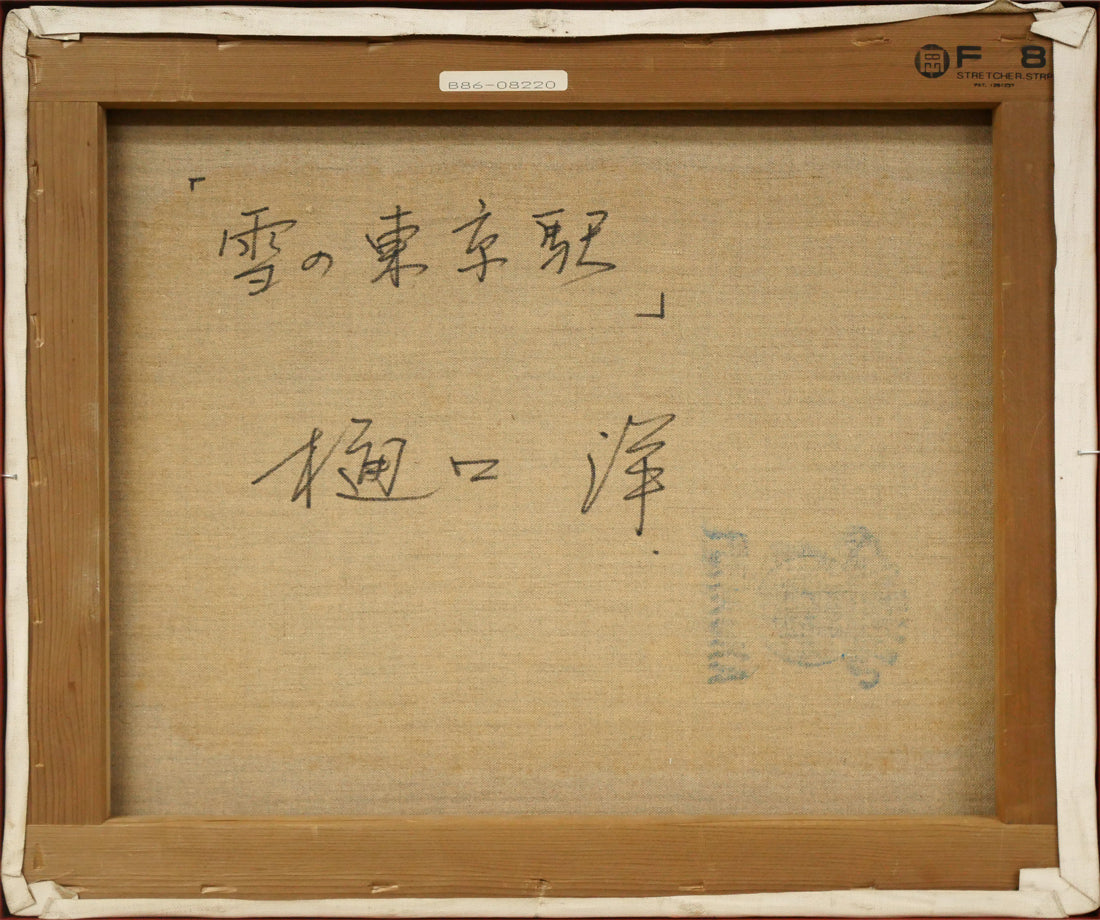 B86-08220
F 8
STRETCHER.STRP
「雪の東京駅」
樋口 洋